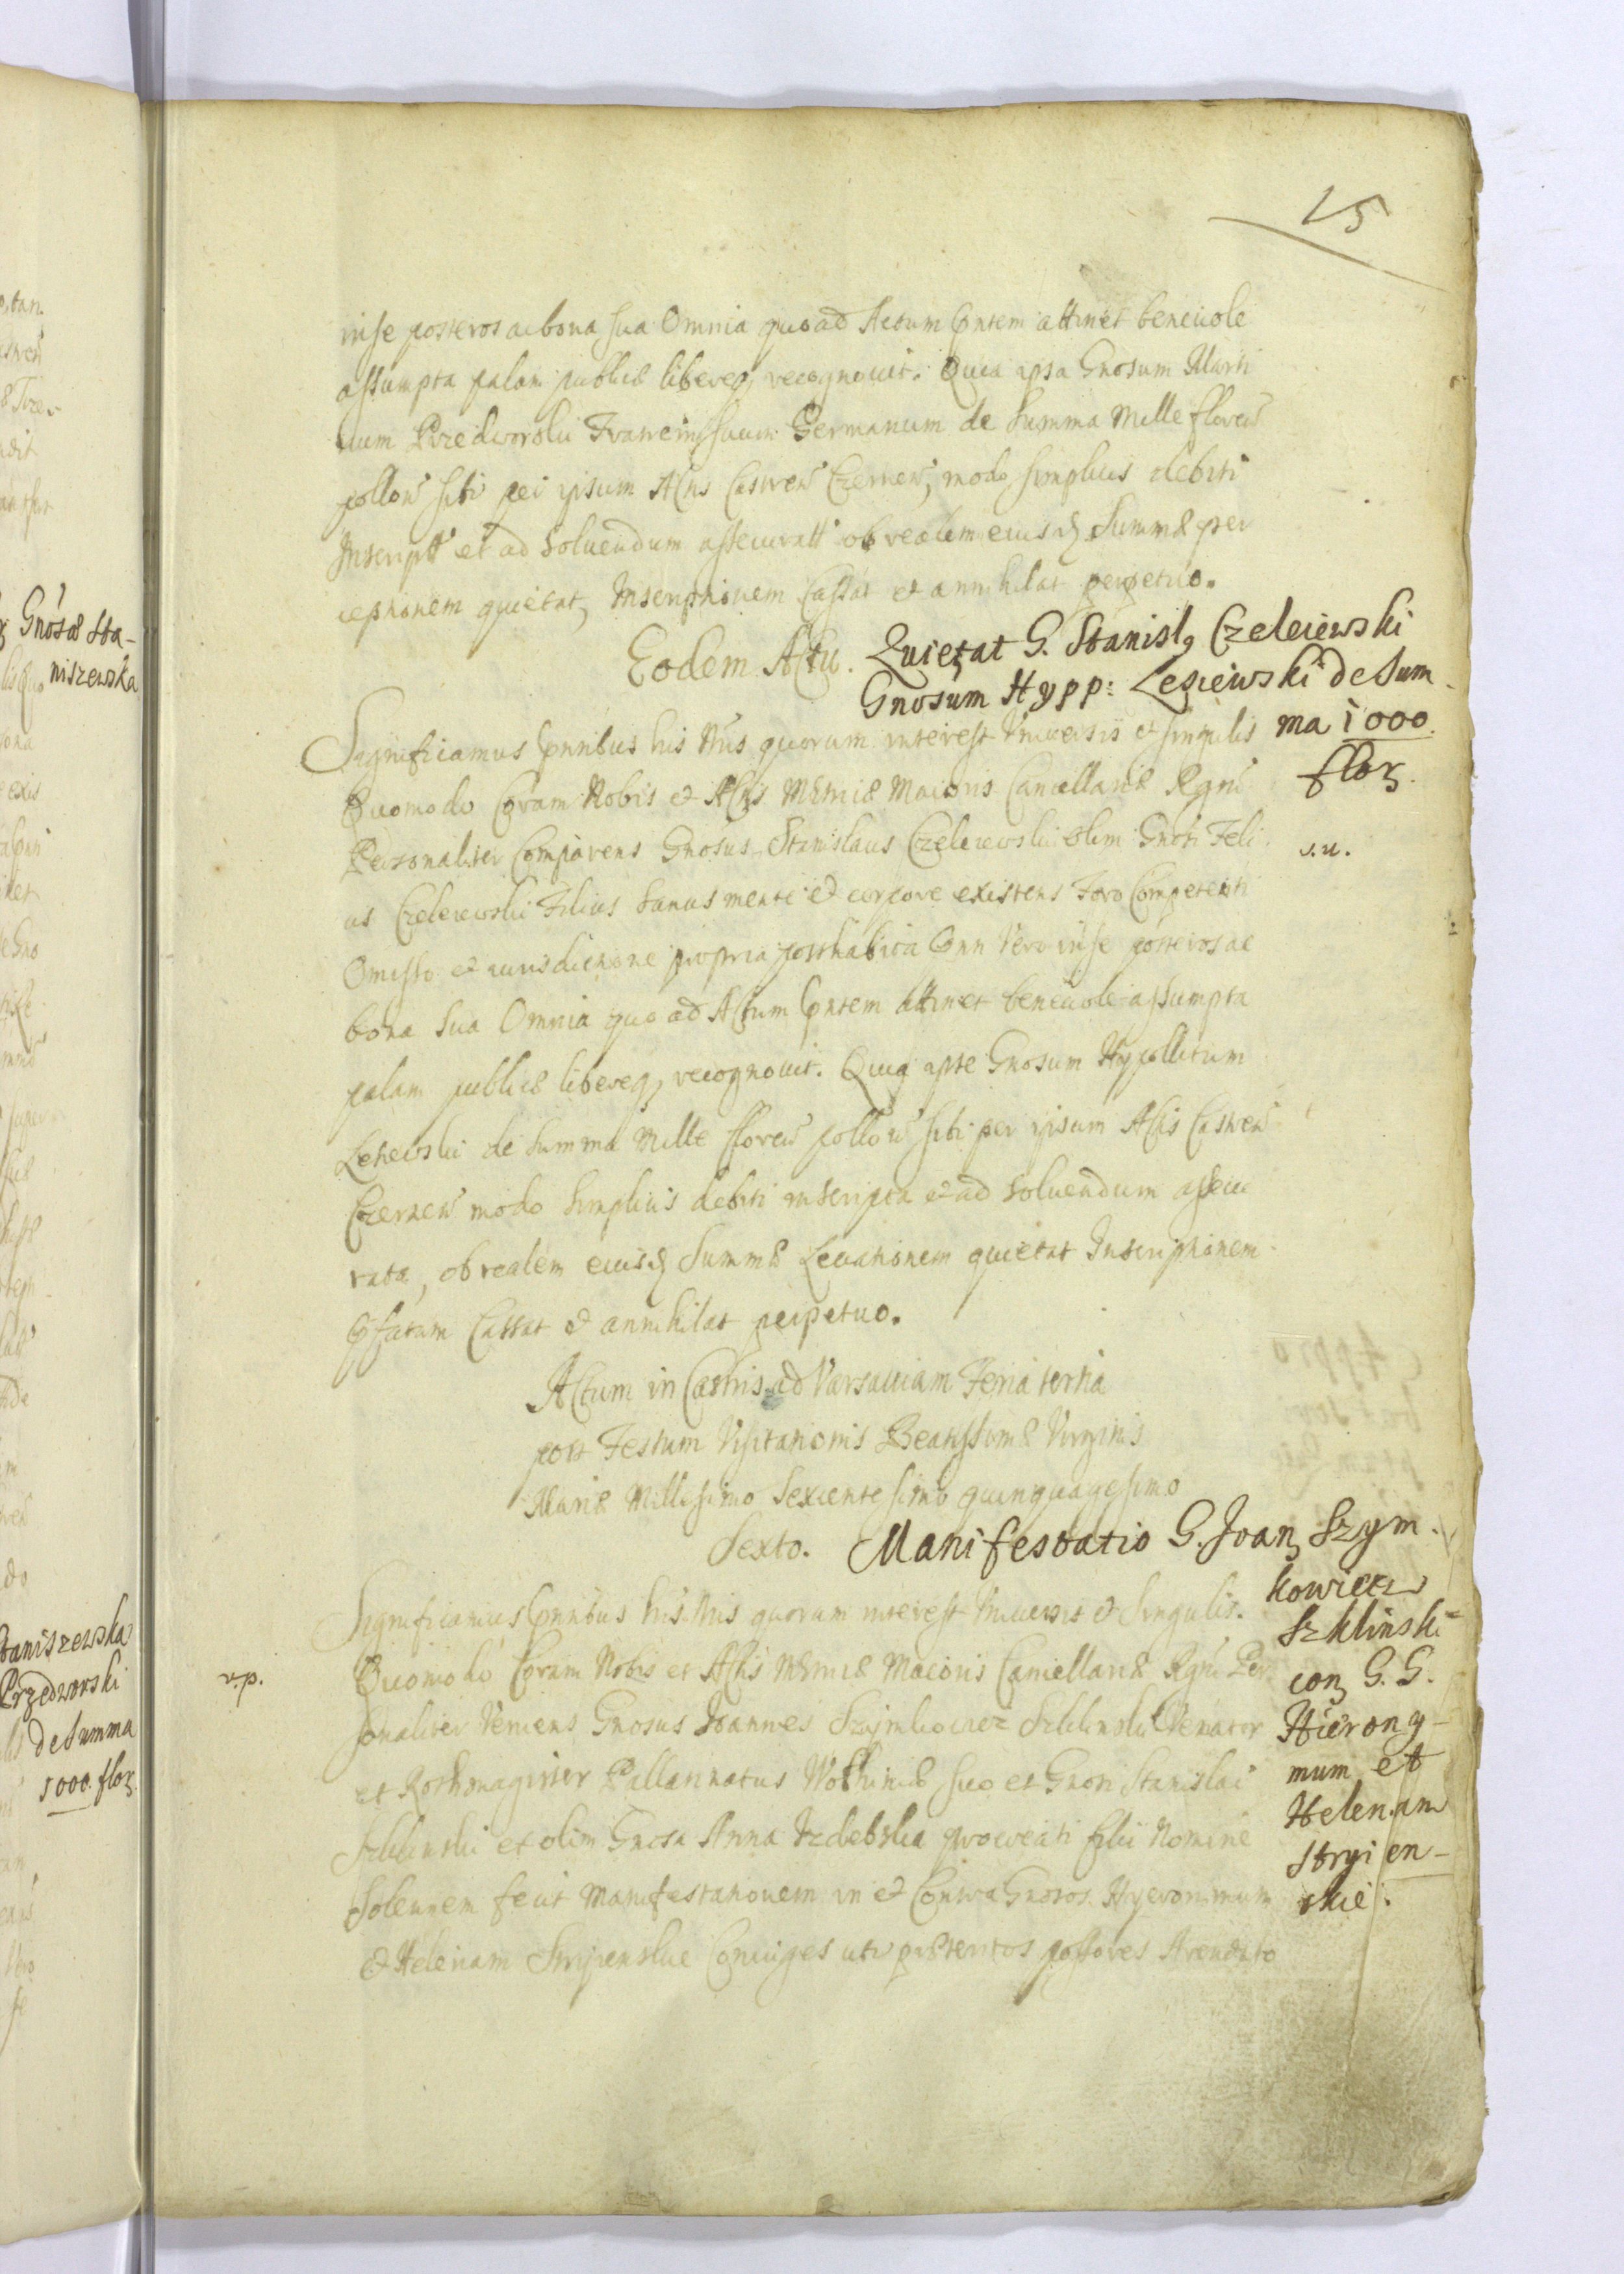 15
in se posteros ac bona sua Omnia quoad Actum Pntem attinet beneuole
assumpta palam publice libereq, recognouit. Quia ipsa Gnosum Marti
num Przedworski Fratrem suum Germanum de Summa Mille floren
pollon sibi per ipsum Actis Castren Czernen, modo simplicis debiti
Inscriptt et ad soluendum assecuratt ob realem eiusd Summæ per
ceptionem quietat, Inscriptionem Cassat et annihilat perpetuo.
Eodem Actu. Quietat G. Stanisl, Czeleiewski
Gnosum Hypp: Lesiewski de Sum
ma 1000.
flor.
Significamus Pntibus his Nris quorum interest Vniuersis et singulis
Quomodo Coram Nobis et Actis Metricæ Maioris Cancellariæ Regni
Personaliter Comparens Gnosus Stanislaus Czeleiewski olim Gnosi Feli
v.u.
cis Czeleiewski Filius sanus mente et corpore existens Foro Competenti
Omisso et iurisdictione propria posthabita Pnti Vero in se posteros ac
bona sua Omnia quo ad Actum Pntem attinet beneuole assumpta
palam publice libereq, recognouit. Quia ipse Gnosum Hypollitum
Lesiewski de Summa Mille floren pollon sibi per ipsum Actis Castren
Czernen modo simplicis debiti inscripta et ad soluendum assecu
rata, ob realem eiusd Summæ Leuationem quietat Inscriptionem
Pfatam Cassat et annihilat perpetuo.
Actum in Castris ad Varsauiam Feria tertia
post Festum Visitationis Beatissimæ Virginis
Mariæ Millesimo Sexcentesimo quinquagesimo
Sexto. Manifestatio G. Joan, Szym
kowicz
Szklinski
con, G. G.
Hierony-
mum et
Helenam
Stryien-
skie.
Significamus Pntibus his Nris quorum interest Vniuersis et Singulis.
v.p.
Quomodo Coram Nobis et Actis Metricæ Maioris Cancellariæ Regni Per
sonaliter Veniens Gnosus Joannes Szymkowicz Szklinski Venator
et Rothmagister Pallatinatus Wolhiniæ suo et Gnosi Stanislai
Szklinski et olim Gnosa Anna Izdebska procreati filii Nomine
Solennem fecit Manifestationem in et Contra Gnosos Hyeronimum
et Helenam Stryienskie Coniuges uti prætentos possores Arendato
Gnosæ Sta-
niszewska
Staniszewska
Przedworski
de Summa
1000. flor